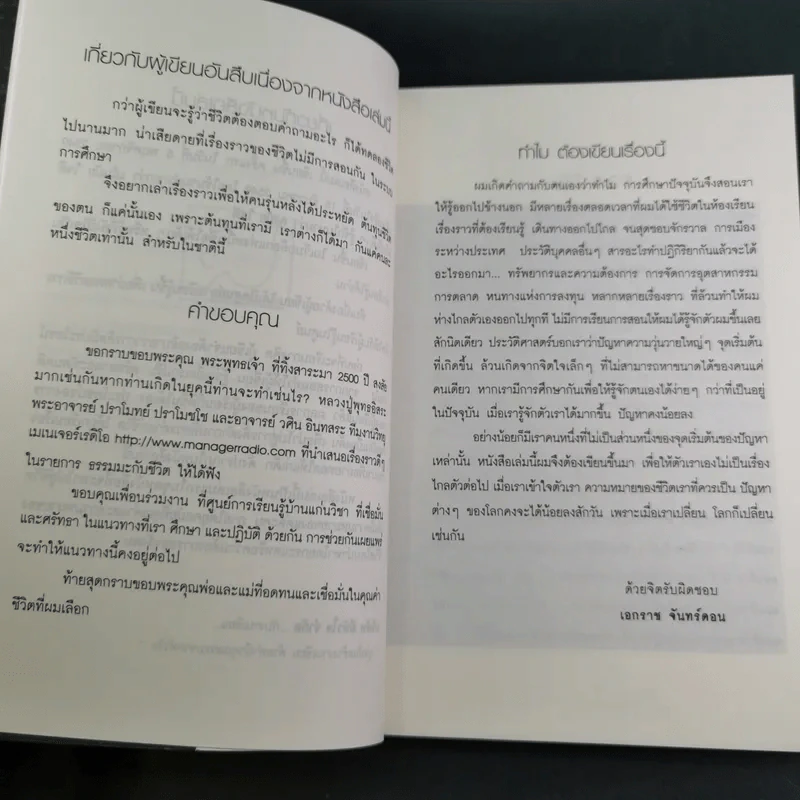 เกี่ยวกับผู้เขียนอันสืบเนื่องจากหนังสือเล่มนี้
กว่าผู้เขียนจะรู้ว่าชีวิตต้องตอบคำถามอะไร ก็ได้ทดลองชีวิต
ไปนานมาก น่าเสียดายที่เรื่องราวของชีวิตไม่มีการสอนกัน ในระบบ
การศึกษา
จึงอยากเล่าเรื่องราวเพื่อให้คนรุ่นหลังได้ประหยัด ต้นทุนชีวิต
ของตน ก็แค่นั้นเอง เพราะต้นทุนที่เรามี เราต่างก็ได้มา กันแค่คนละ
หนึ่งชีวิตเท่านั้น สำหรับในชาตินี้
คำขอบคุณ
ขอกราบขอบพระคุณ พระพุทธเจ้า ที่ทิ้งสาระมา 2500 ปี สงสัย
มากเช่นกันหากท่านเกิดในยุคนี้ท่านจะทำเช่นไร? หลวงปู่พุทธอิสระ
พระอาจารย์ ปราโมทย์ ปราโมชโช และอาจารย์ วศิน อินทสระ ทีมงานวิทยุ
เมเนเจอร์เรดิโอ http://www.managerradio.com ที่นำเสนอเรื่องราวดีๆ
ในรายการ ธรรมมะกับชีวิต ให้ได้ฟัง
ขอบคุณเพื่อนร่วมงาน ที่ศูนย์การเรียนรู้บ้านแก่นวิชา ที่เชื่อมั่น
และศรัทธา ในแนวทางที่เรา ศึกษา และปฏิบัติ ด้วยกัน การช่วยกันเผยแพร่
จะทำให้แนวทางนี้คงอยู่ต่อไป
ท้ายสุดกราบขอบพระคุณพ่อและแม่ที่อดทนและเชื่อมั่นในคุณค่า
ชีวิตที่ผมเลือก
ทำไม ต้องเขียนเรื่องนี้
ผมเกิดคำถามกับตนเองว่าทำไม การศึกษาปัจจุบันจึงสอนเรา
ให้รู้ออกไปข้างนอก มีหลายเรื่องตลอดเวลาที่ผมได้ใช้ชีวิตในห้องเรียน
เรื่องราวที่ต้องเรียนรู้ เดินทางออกไปไกล จนสุดขอบจักรวาล การเมือง
ระหว่างประเทศ ประวัติบุคคลอื่นๆ สารอะไรทำปฏิกิริยากันแล้วจะได้
อะไรออกมา... ทรัพยากรและความต้องการ การจัดการอุตสาหกรรม
การตลาด หนทางแห่งการลงทุน หลากหลายเรื่องราว ที่ล้วนทำให้ผม
ห่างไกลตัวเองออกไปทุกที ไม่มีการเรียนการสอนให้ได้รู้จักตัวผมขึ้นเลย
สักนิดเดียว ประวัติศาสตร์บอกเราว่าปัญหาความวุ่นวายใหญ่ๆ จุดเริ่มต้น
ที่เกิดขึ้น ล้วนเกิดจากจิตใจเล็กๆ ที่ไม่สามารถหาขนาดได้ของคนแค่
คนเดียว หากเรามีการศึกษากันเพื่อให้รู้จักตนเองได้ง่ายๆ กว่าที่เป็นอยู่
ในปัจจุบัน เมื่อเรารู้จักตัวเราได้มากขึ้น ปัญหาคงน้อยลง
อย่างน้อยก็มีเราคนหนึ่งที่ไม่เป็นส่วนหนึ่งของจุดเริ่มต้นของปัญหา
เหล่านั้น หนังสือเล่มนี้ผมจึงต้องเขียนขึ้นมา เพื่อให้ตัวเราเองไม่เป็นเรื่อง
ไกลตัวต่อไป เมื่อเราเข้าใจตัวเรา ความหมายของชีวิตเราที่ควรเป็น ปัญหา
ต่างๆ ของโลกคงจะได้น้อยลงสักวัน เพราะเมื่อเราเปลี่ยน โลกก็เปลี่ยน
เช่นกัน
ด้วยจิตรับผิดชอบ
เอกราช จันทร์ดอน